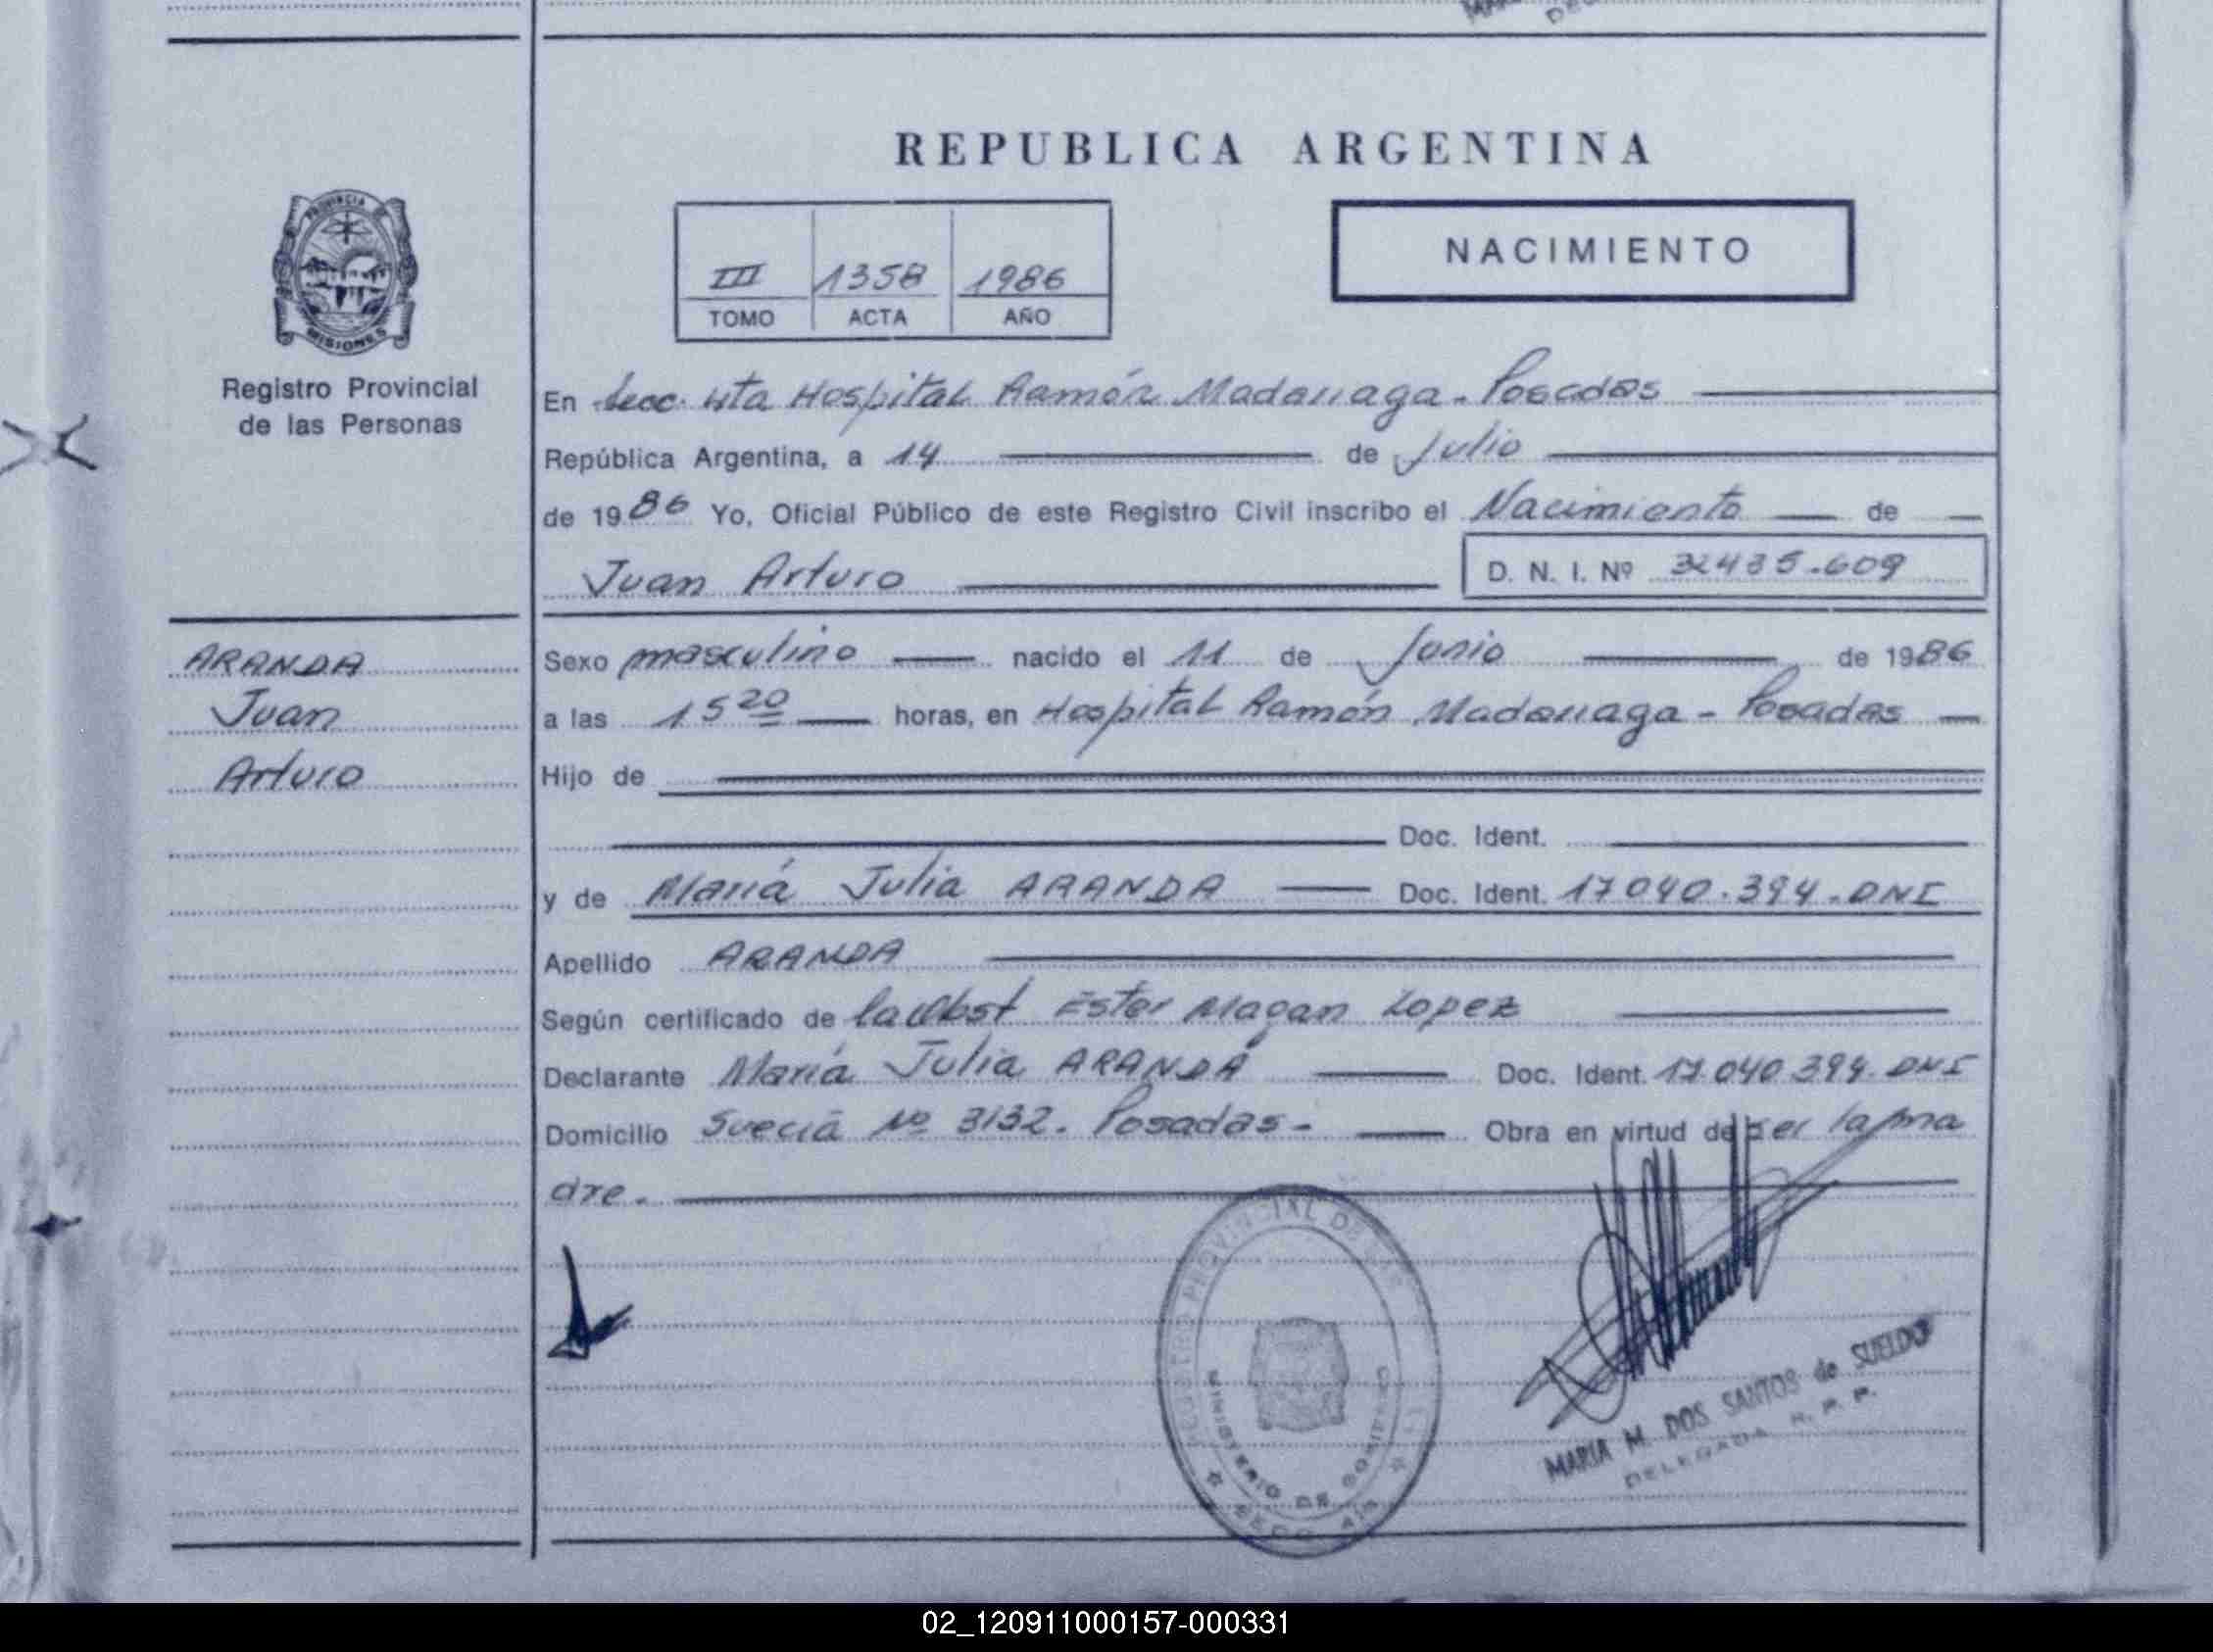 REPUBLICA ARGENTINA
PROVINCIA DE
MISIONES
Registro Provincial
de las Personas
III 1358 1986
TOMO ACTA AÑO
NACIMIENTO
En Secc. 4ta Hospital Ramón Madariaga - Posadas
República Argentina, a 14 de Julio
de 1986 Yo, Oficial Público de este Registro Civil inscribo el Nacimiento de
Juan Arturo D. N. I. Nº 32435.609
ARANDA
Juan
Arturo
Sexo masculino nacido el 11 de Junio de 1986
a las 15 20 horas, en Hospital Ramón Madariaga - Posadas
Hijo de
Doc. Ident.
y de María Julia ARANDA Doc. Ident. 17040.394.DNI
Apellido ARANDA
Según certificado de la Obst Ester Magan Lopez
Declarante María Julia ARANDA Doc. Ident. 17.040.394. DNI
Domicilio Suecia Nº 3132. Posadas - Obra en virtud de ser la ma
dre.
REGISTRO PROVINCIAL DE
MINISTERIO DE GOBIERNO
MARIA M. DOS SANTOS de SUELDO
DELEGADA R. P. P.
02_120911000157-000331